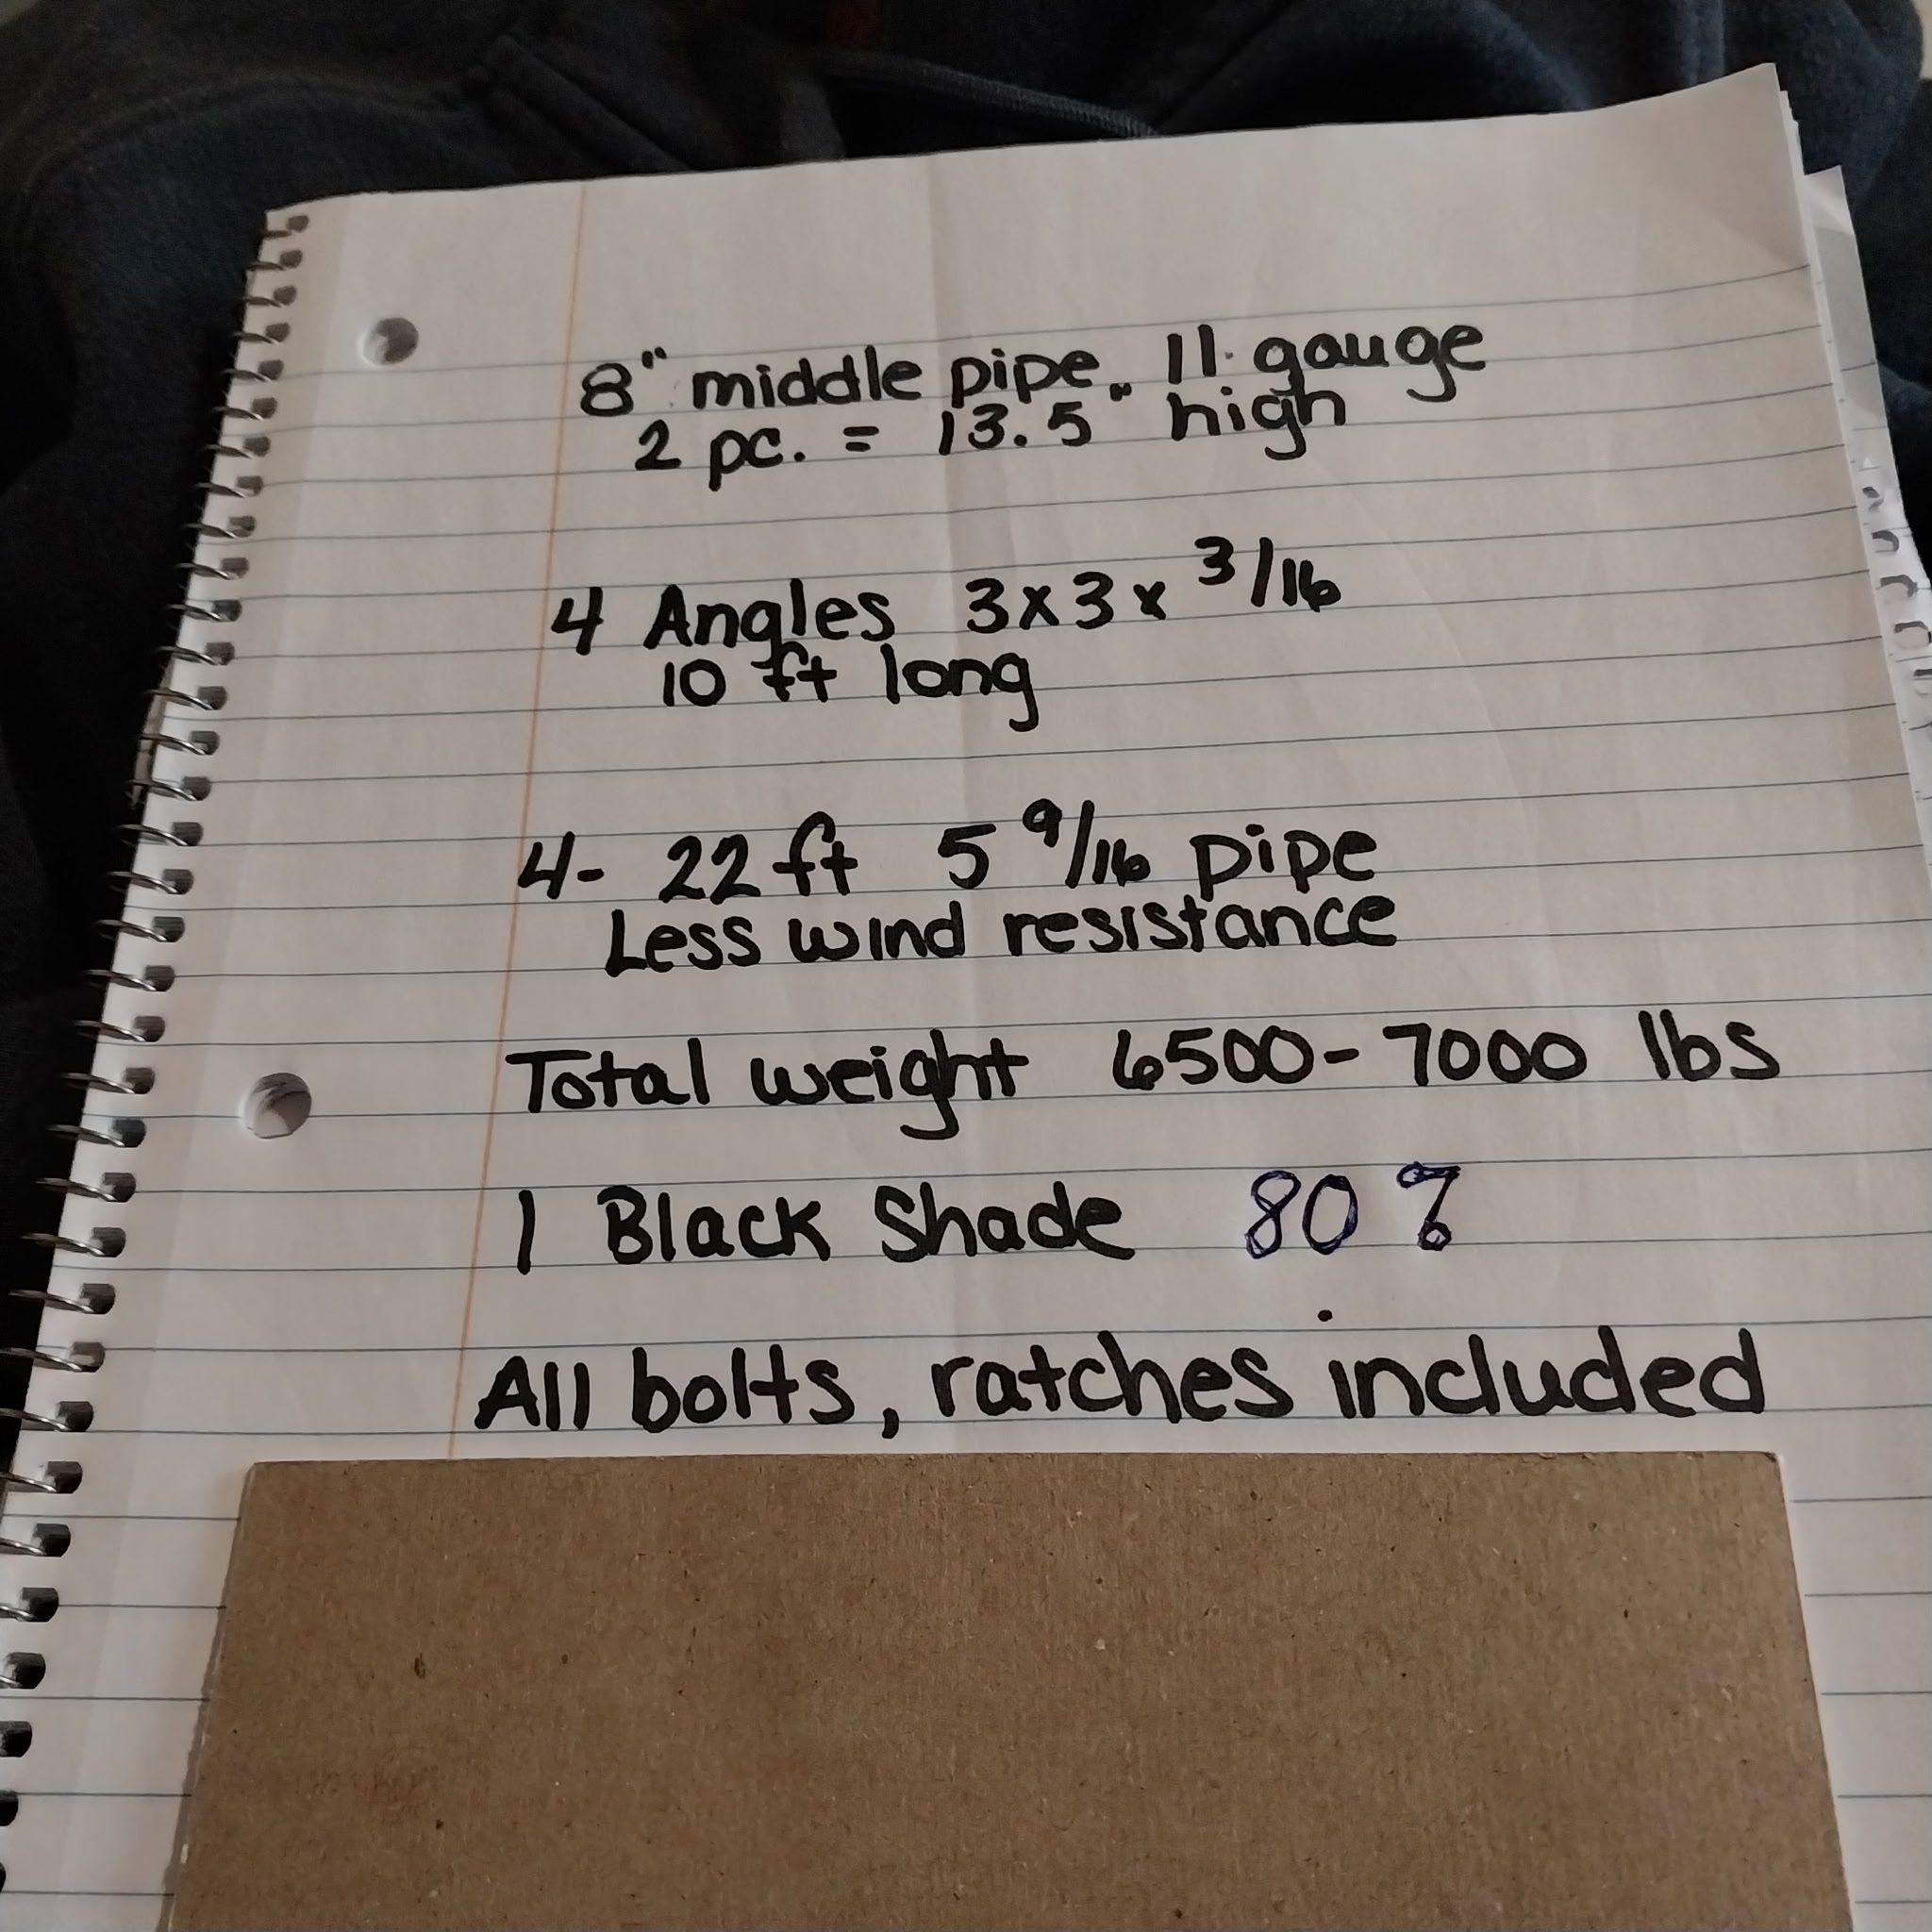 8" middle pipe. 11 gauge
2 pc. = 13.5" high
4 Angles 3x3x 3/16
10 ft long
4- 22 ft 5 9/16 pipe
Less wind resistance
Total weight 6500-7000 lbs
1 Black Shade 80%
All bolts, ratches included